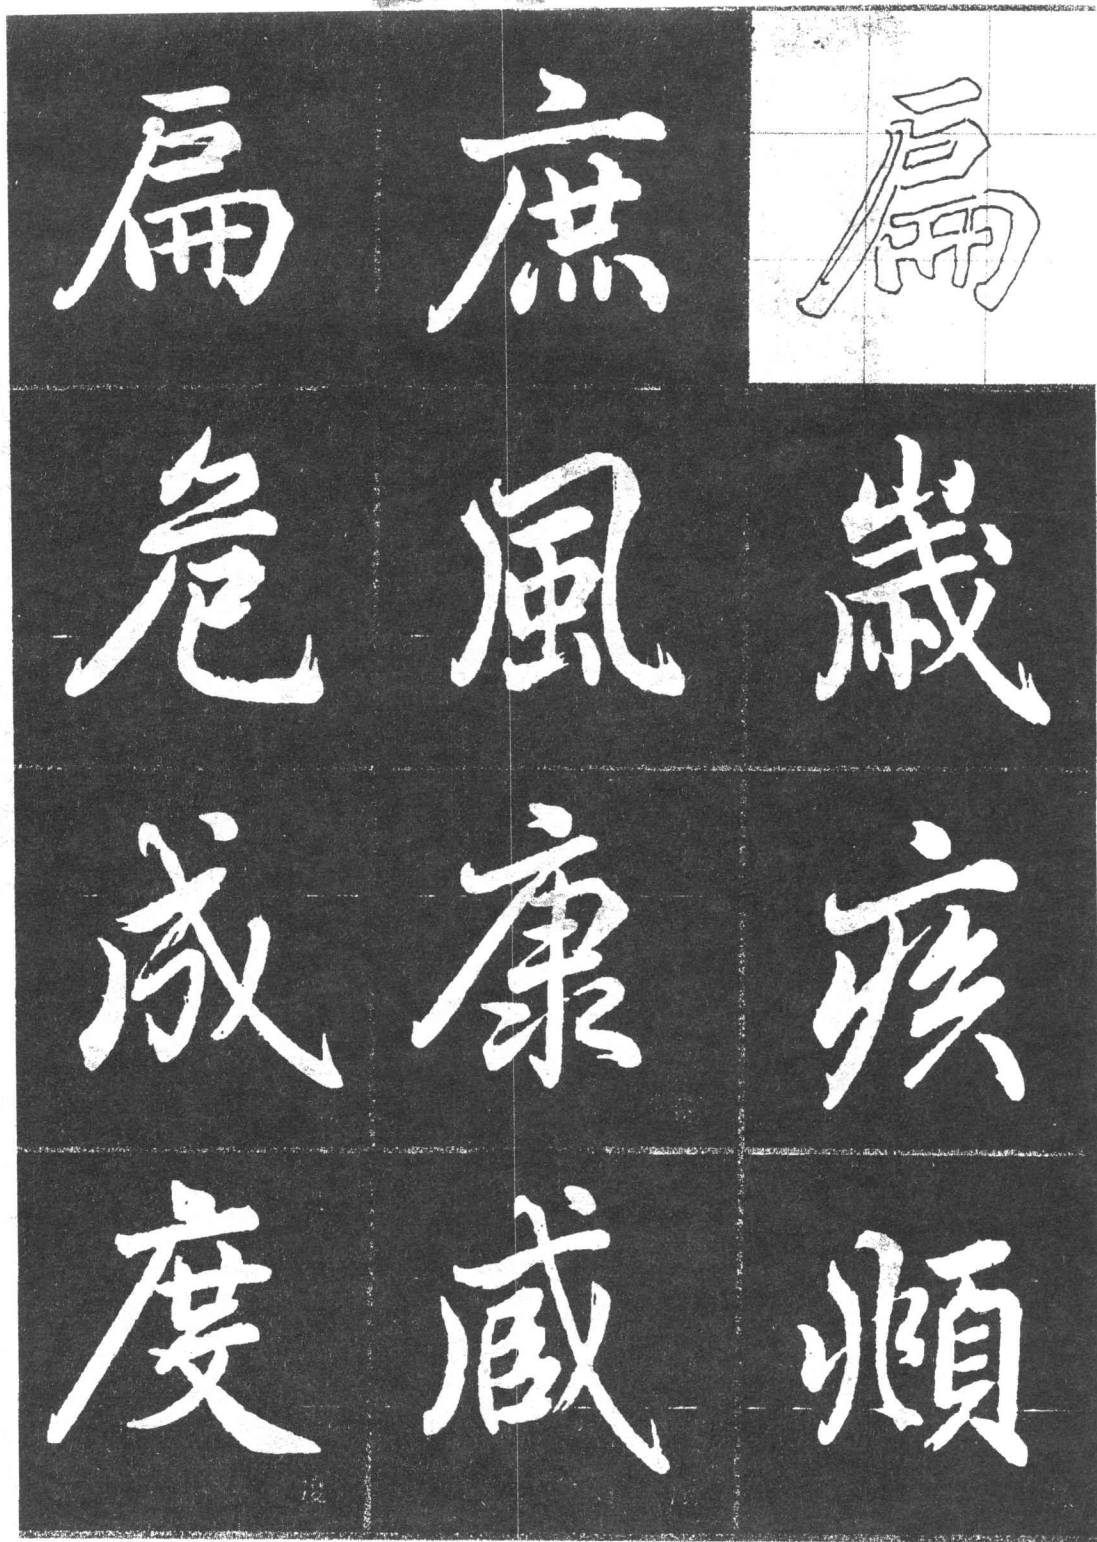 扁歲疾頫
庶風康
扁危成度